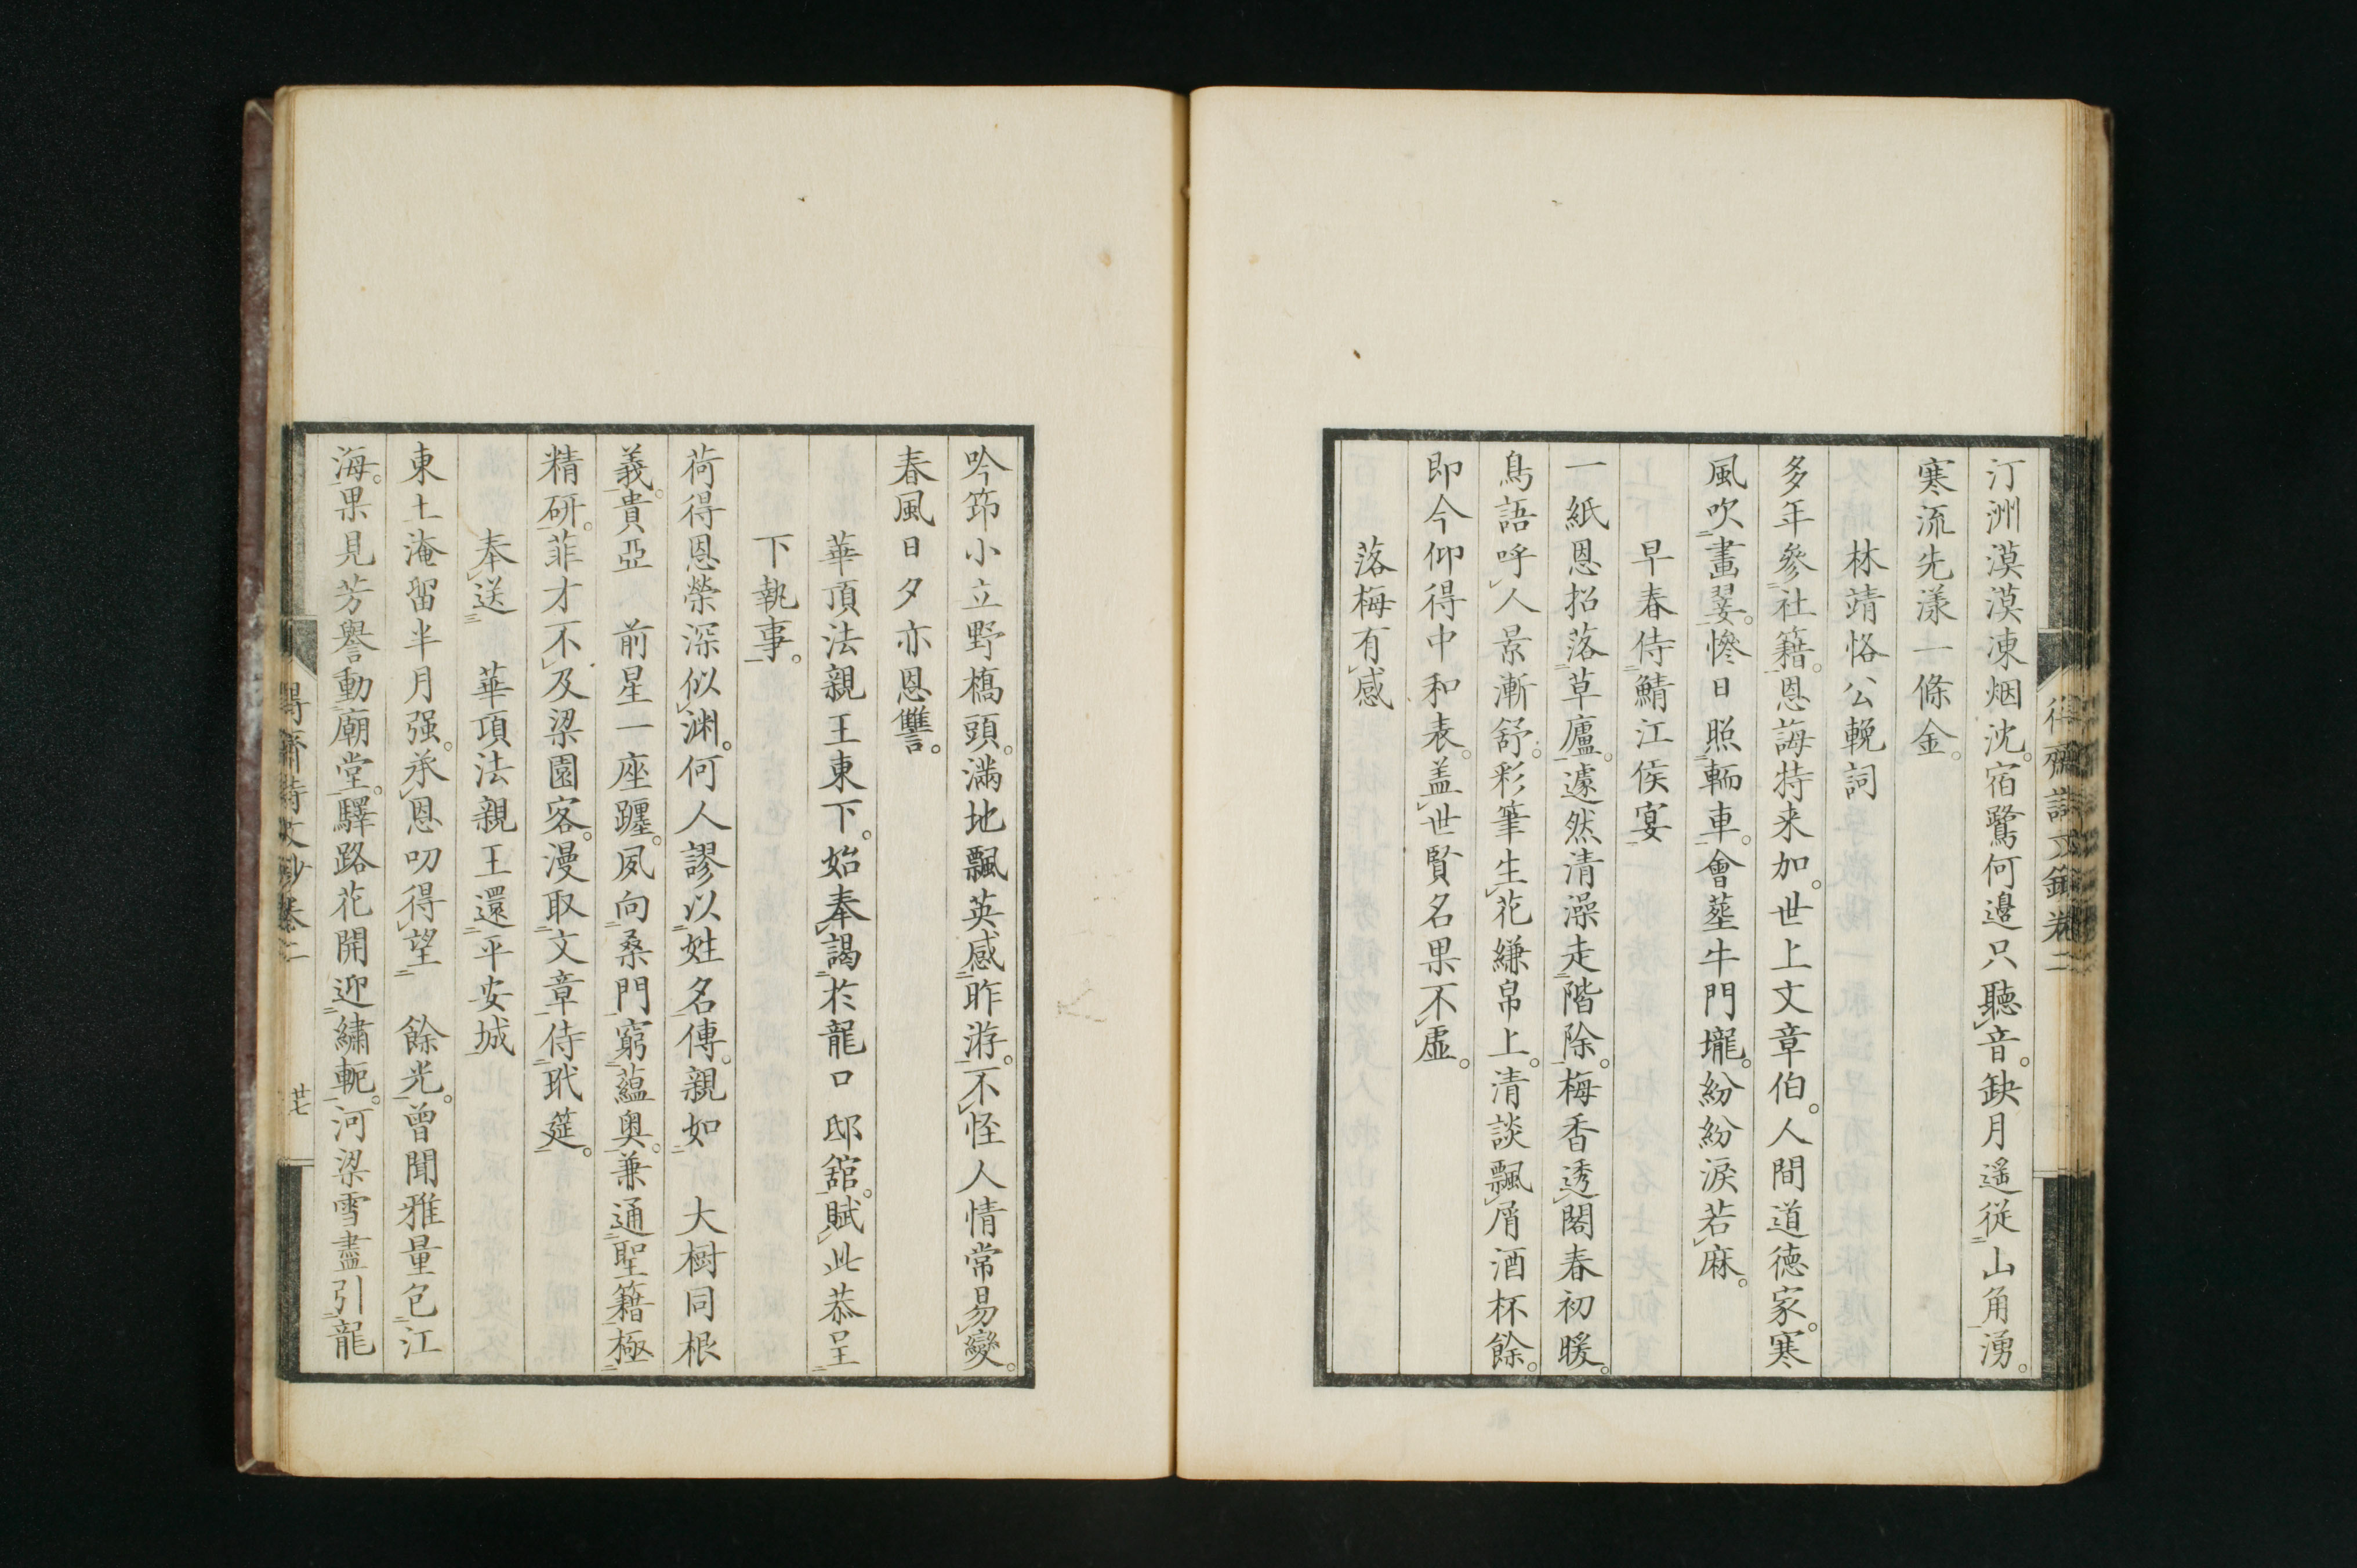 汀洲漠漠凍烟沈。宿鷺何邊只聽音。缺月遥從山角湧。
寒流先漾一條金。
林靖恪公輓詞
多年參社籍。恩誨特来加。世上文章伯。人間道徳家。寒
風吹畫翣。惨日照輀車。會塟牛門壠。紛紛淚若麻。
早春侍鯖江侯宴
一紙恩招落草廬。遽然清澡走階除。梅香透閣春初暖。
鳥語呼人景漸舒。彩筆生花縑帛上。清談飄屑酒杯餘。
即今仰得中和表。盖世賢名果不虚。
落梅有感
吟筇小立野橋頭。満地飄英感昨游。不怪人情常易變。
春風日夕亦恩讐。
華頂法親王東下。始奉謁於龍口邸舘。賦此恭呈
下執事。
荷得恩榮深似渊。何人謬以姓名傳。親如 大樹同根
義。貴亞 前星一座躔。夙向桑門窮蘊奥。兼通聖籍極
精研。菲才不及梁園客。漫取文章侍玳筵。
奉送 華頂法親王還平安城
東土淹留半月强。承恩叨得望 餘光。曾聞雅量包江
海。果見芳譽動廟堂。驛路花開迎繍軛。河梁雪盡引龍
齋詩文鈔卷二
廿七